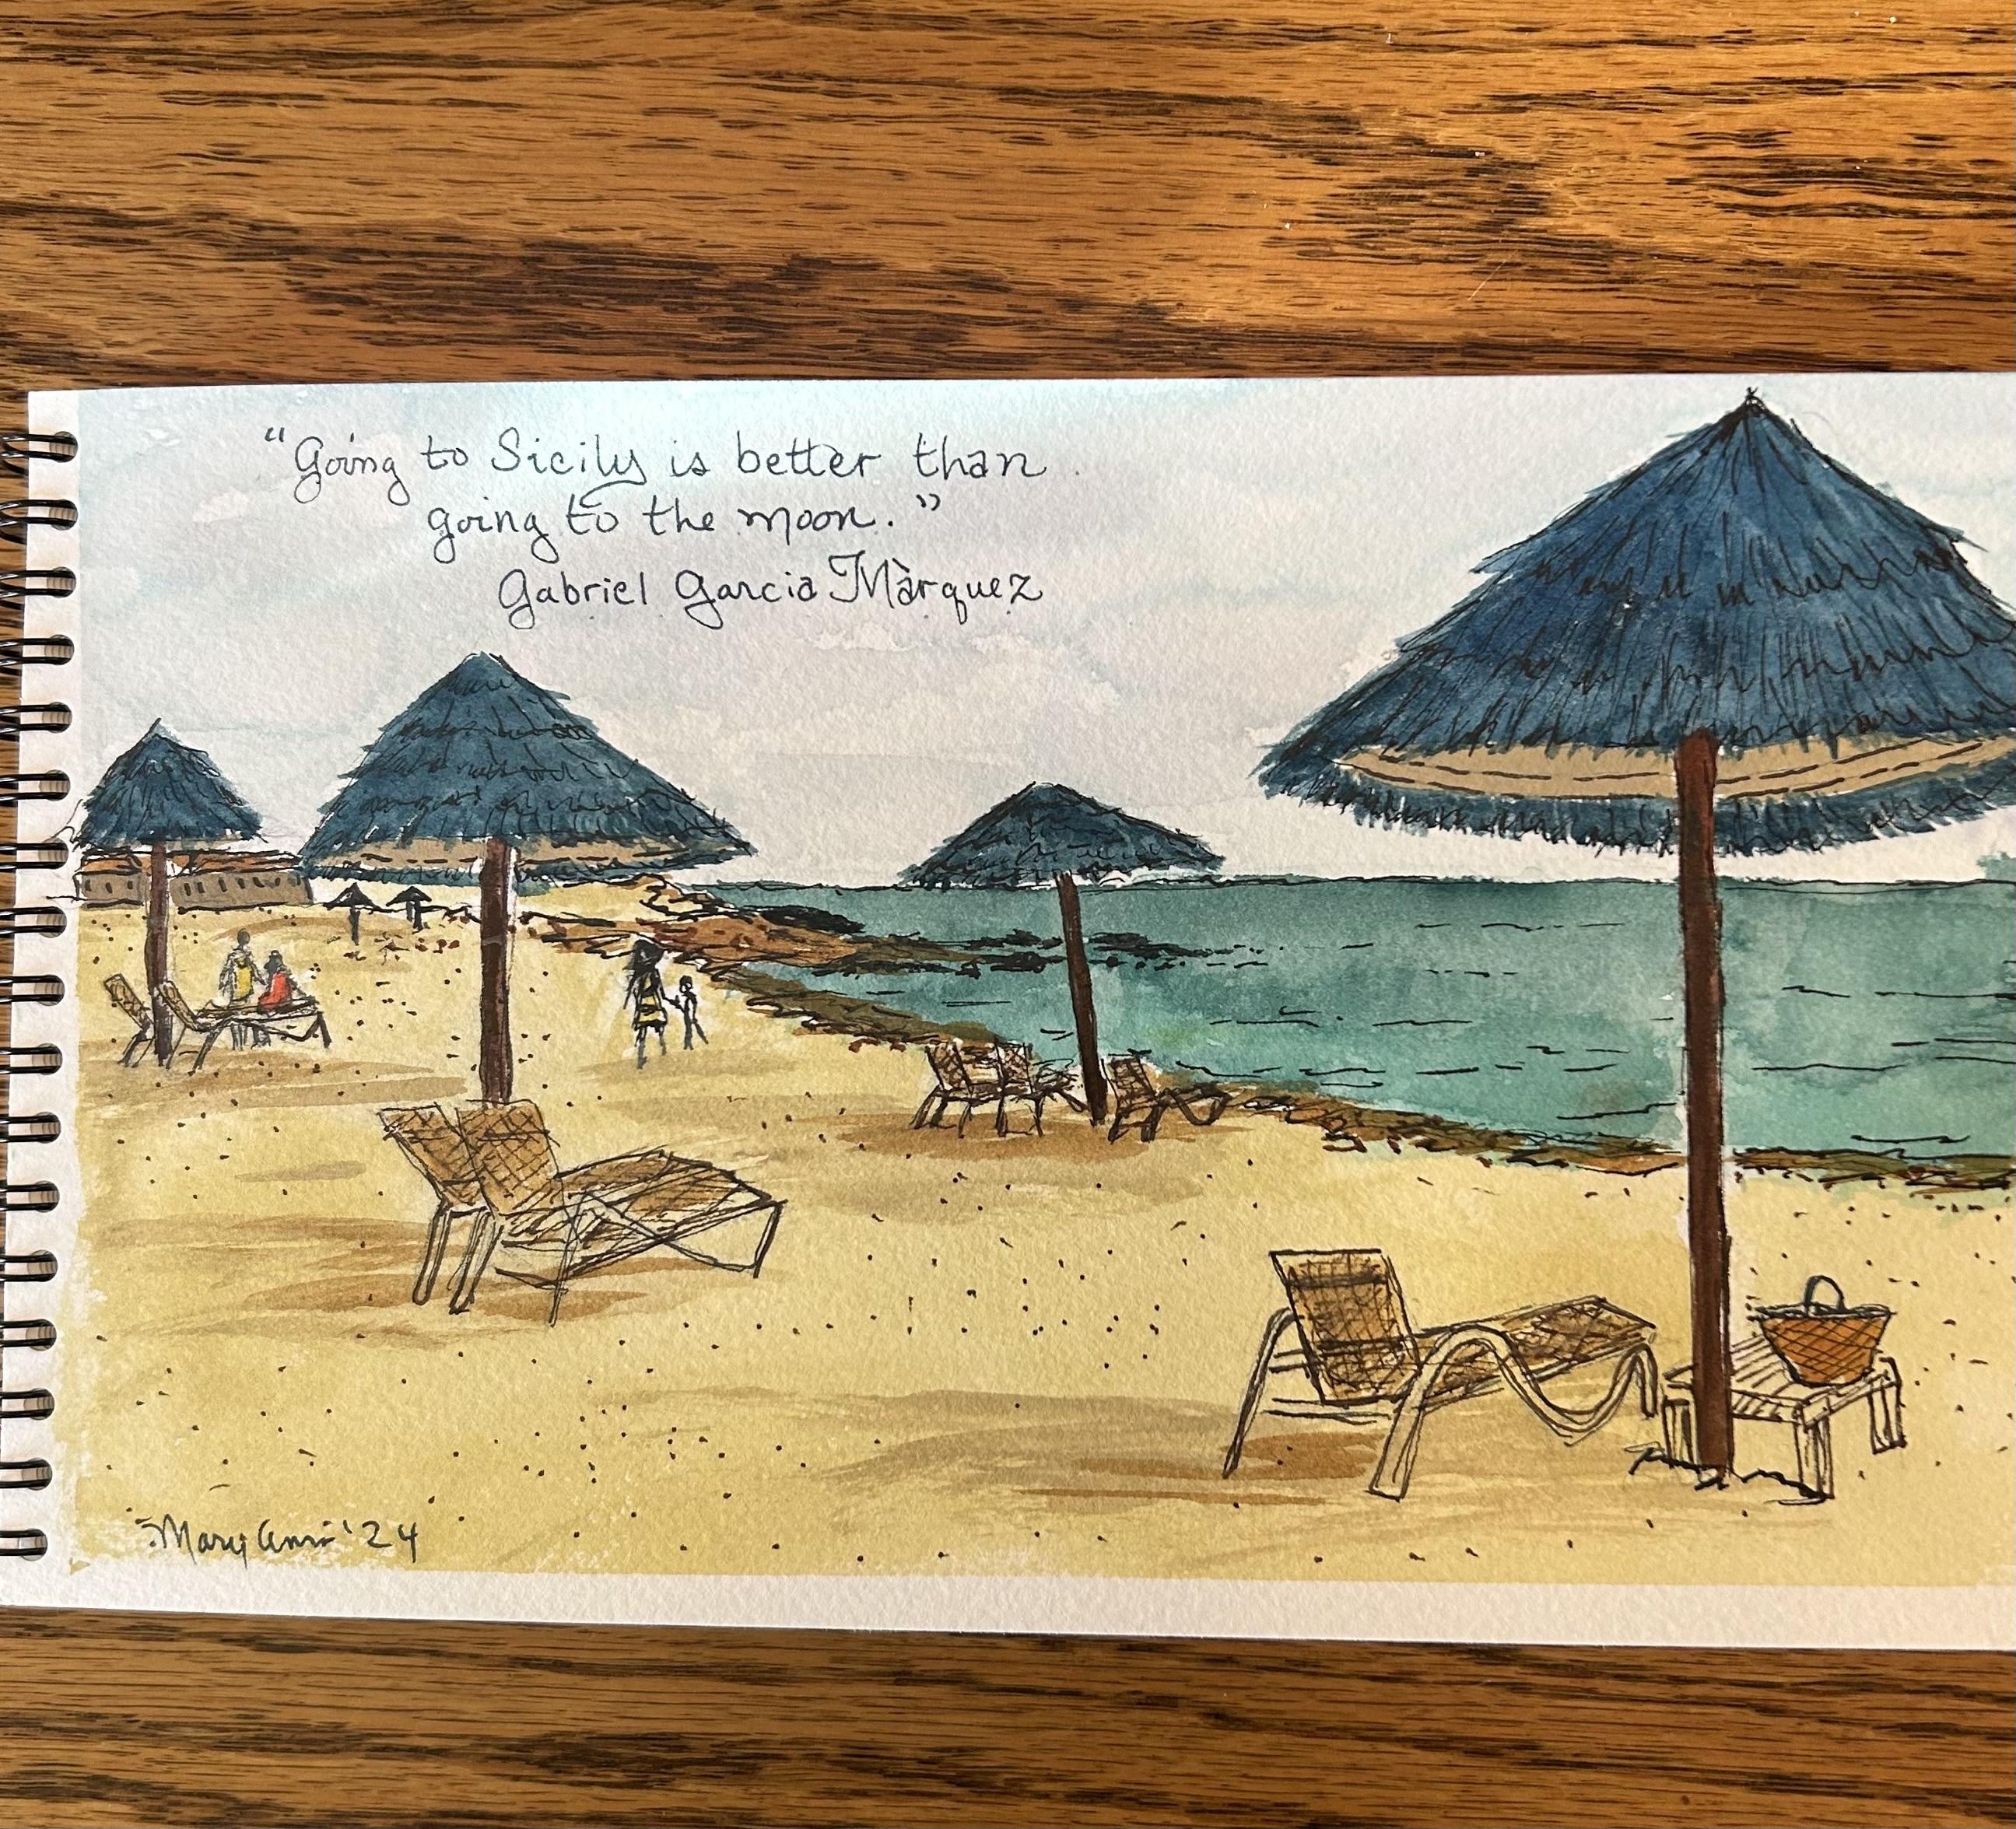 "Going to Sicily is better than
going to the moon."
Gabriel Garcia Màrquez
Mary Ann '24